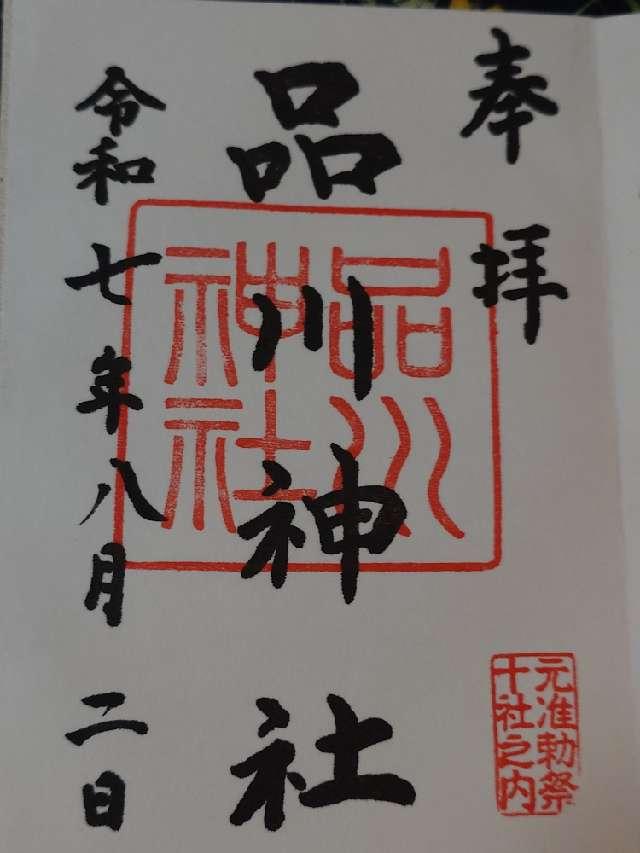 奉拝
元准勅祭
十社之内
品川神社
品川
神社
令和七年八月二日